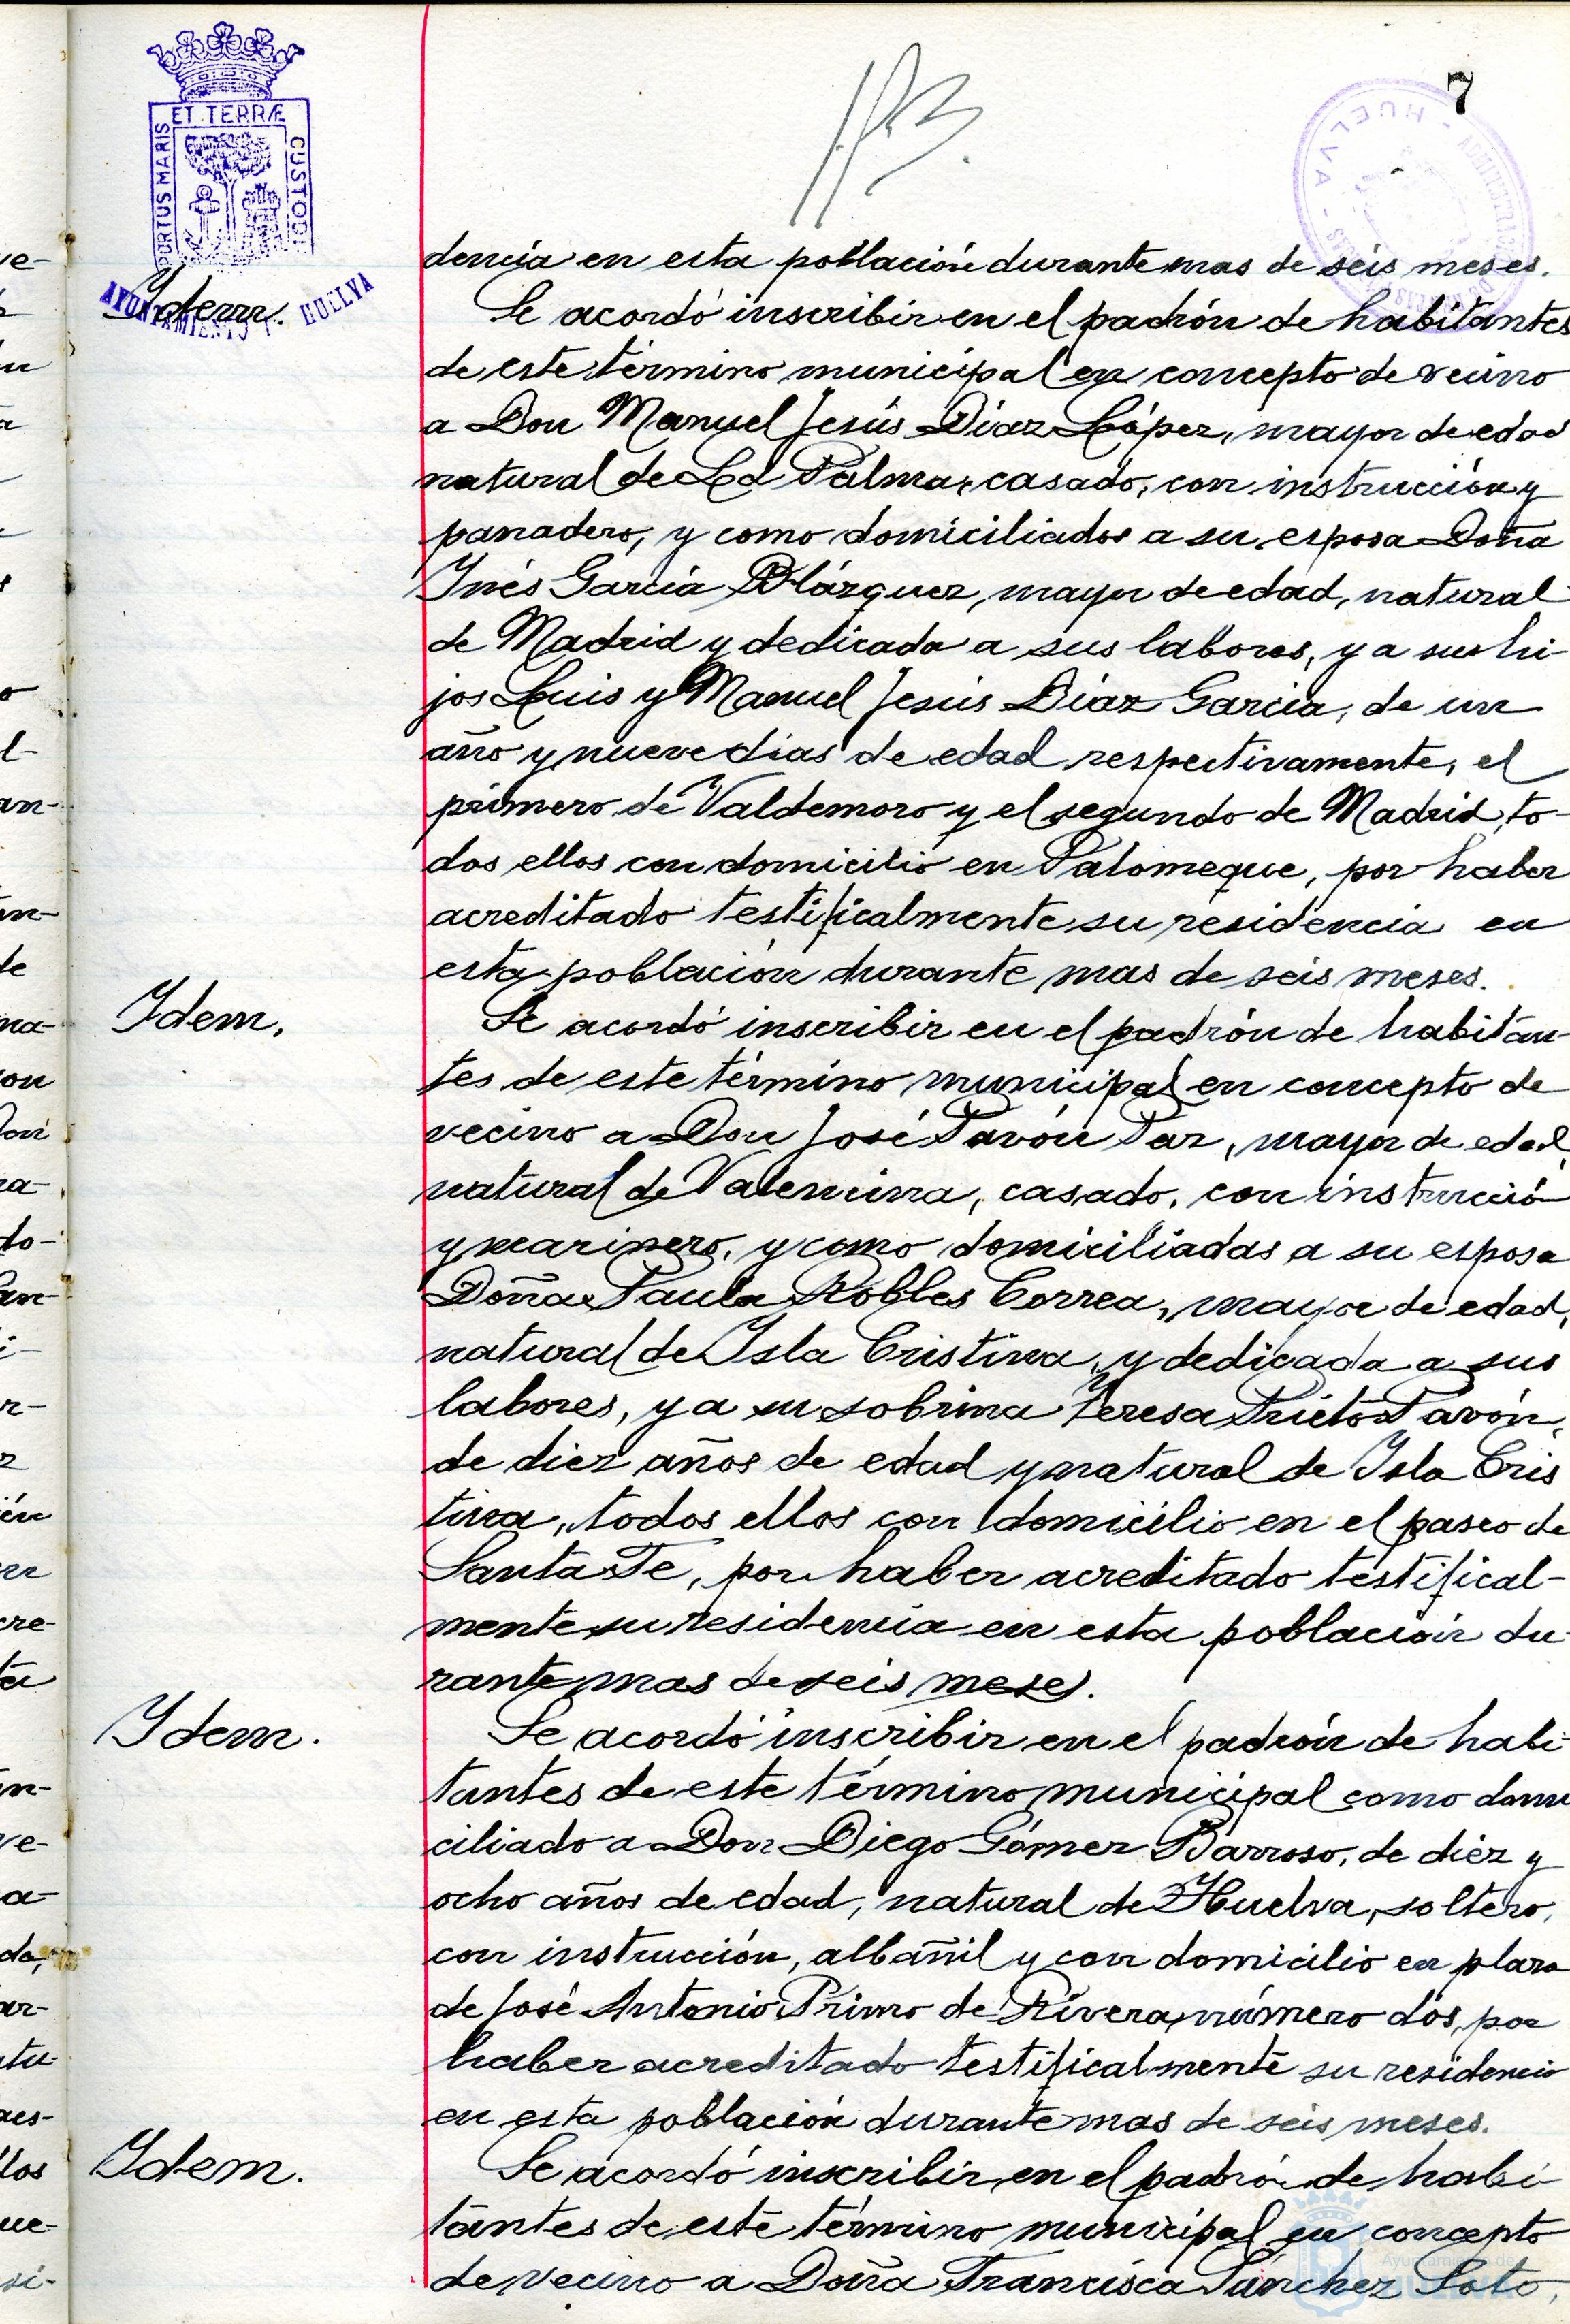 7
ET TERRÆ
PORTUS MARIS
CUSTODI
AYUNTAMIENTO HUELVA
HUELVA
dencia en esta población durante mas de séis meses.
Ydem.
Se acordó inscribir en el padrón de habitantes
de este término municipal en concepto de vecino
a Don Manuel Jesús Díaz López, mayor de edad
natural de La Palma, casado, con instrucción y
panadero, y como domiciliados a su esposa Doña
Ynés García Blázquez, mayor de edad, natural
de Madrid y dedicada a sus labores, y a sus hi-
jos Luis y Manuel Jesús Díaz García, de un
año y nueve dias de edad respectivamente, el
primero de Valdemoro y el segundo de Madrid, to-
dos ellos con domicilio en Palomeque, por haber
acreditado testificalmente su residencia en
esta población durante mas de seis meses.
Ydem.
Se acordó inscribir en el padrón de habitan-
tes de este término municipal en concepto de
vecino a Don José Pavón Paz, mayor de edad,
natural de Valencina, casado, con instrucció
y marinero, y como domiciliadas a su esposa
Doña Paula Robles Correa, mayor de edad,
natural de Ysla Cristina, y dedicada a sus
labores, y a su sobrina Teresa Prieto Pavón,
de diez años de edad y natural de Ysla Cris
tina, todos ellos con domicilio en el paseo de
Santa Fe, por haber acreditado testifical-
mente su residencia en esta población du-
rante mas de seis meses.
Ydem.
Se acordó inscribir en el padrón de habi-
tantes de este término municipal como domi
ciliado a Don Diego Gómez Barroso, de diez y
ocho años de edad, natural de Huelva, soltero,
con instrucción, albañil y con domicilio en plaza
de José Antonio Primo de Rivera, número dos, por
haber acreditado testificalmente su residencia
en esta población durante mas de seis meses.
Ydem.
Se acordó inscribir en el padrón de habi
tantes de este término municipal en concepto
de vecino a Doña Francisca Sánchez Soto,
Ayuntamiento de
HUELVA